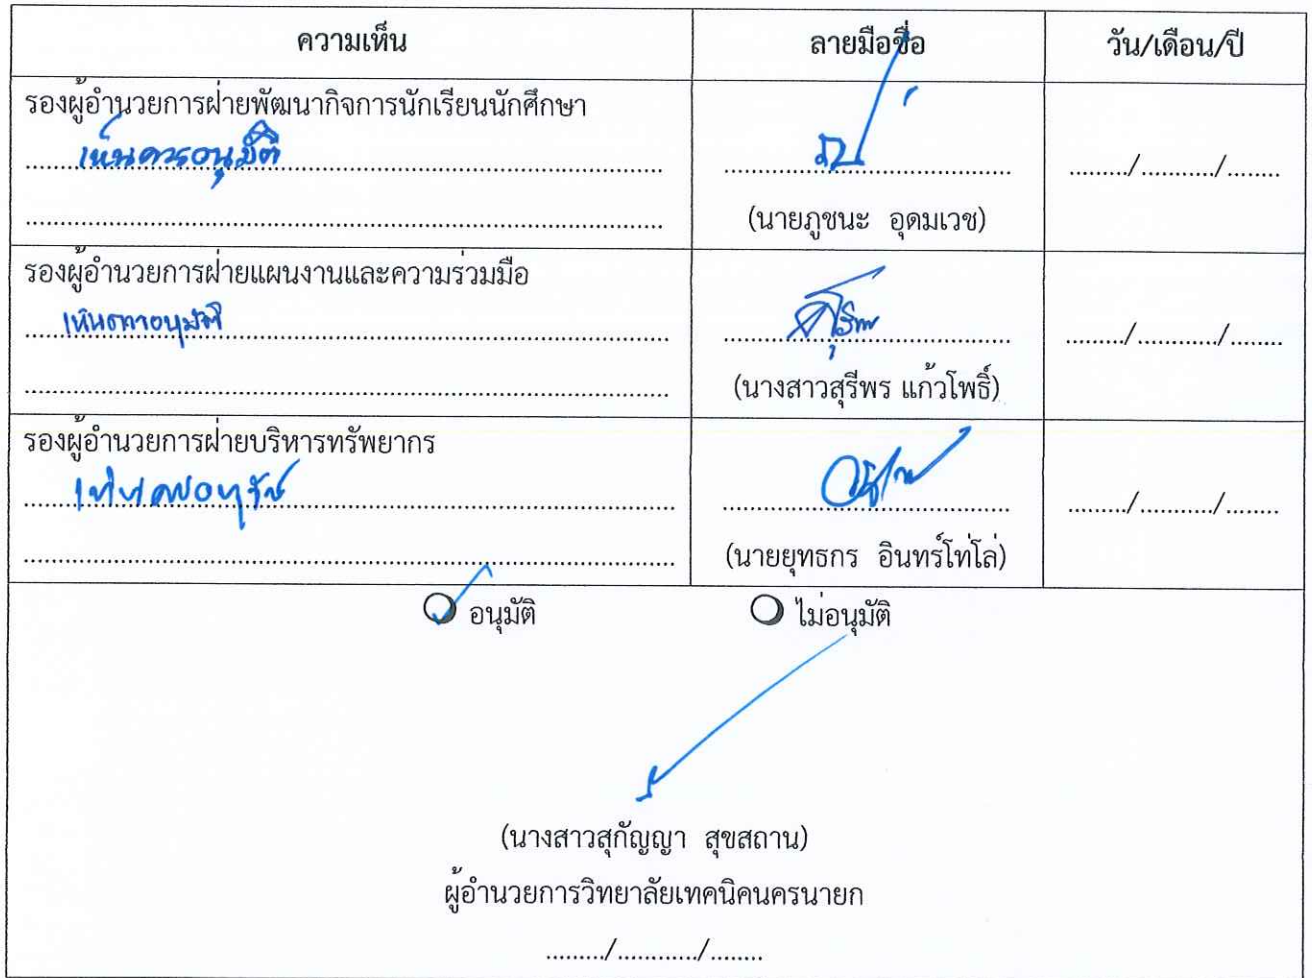 ความเห็น ลายมือชื่อ วัน/เดือน/ปี
รองผู้อำนวยการฝ่ายพัฒนากิจการนักเรียนนักศึกษา
เห็นควรอนุมัติ
........./.........../........
(นายภูชนะ อุดมเวช)
รองผู้อำนวยการฝ่ายแผนงานและความร่วมมือ
เห็นควรอนุมัติ
........./............/........
(นางสาวสุรีพร แก้วโพธิ์)
รองผู้อำนวยการฝ่ายบริหารทรัพยากร
เห็นควรอนุมัติ
........./.........../........
(นายยุทธกร อินทร์โทโล่)
อนุมัติ ไม่อนุมัติ
(นางสาวสุกัญญา สุขสถาน)
ผู้อำนวยการวิทยาลัยเทคนิคนครนายก
........./............/........